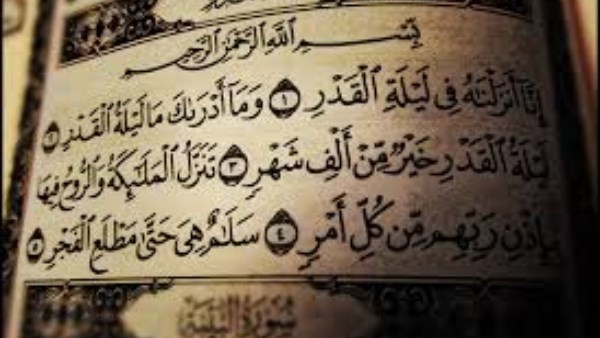 بِسْمِ اللَّهِ الرَّحْمَٰنِ الرَّحِيمِ
إِنَّا أَنزَلْنَٰهُ فِى لَيْلَةِ ٱلْقَدْرِ ١ وَمَآ أَدْرَىٰكَ مَا لَيْلَةُ ٱلْقَدْرِ ٢
لَيْلَةُ ٱلْقَدْرِ خَيْرٌ مِّنْ أَلْفِ شَهْرٍ ٣ تَنَزَّلُ ٱلْمَلَٰٓئِكَةُ وَٱلرُّوحُ فِيهَا
بِإِذْنِ رَبِّهِم مِّن كُلِّ أَمْرٍ ٤ سَلَٰمٌ هِىَ حَتَّىٰ مَطْلَعِ ٱلْفَجْرِ ٥
سُورَةُ البَيِّنَةِ